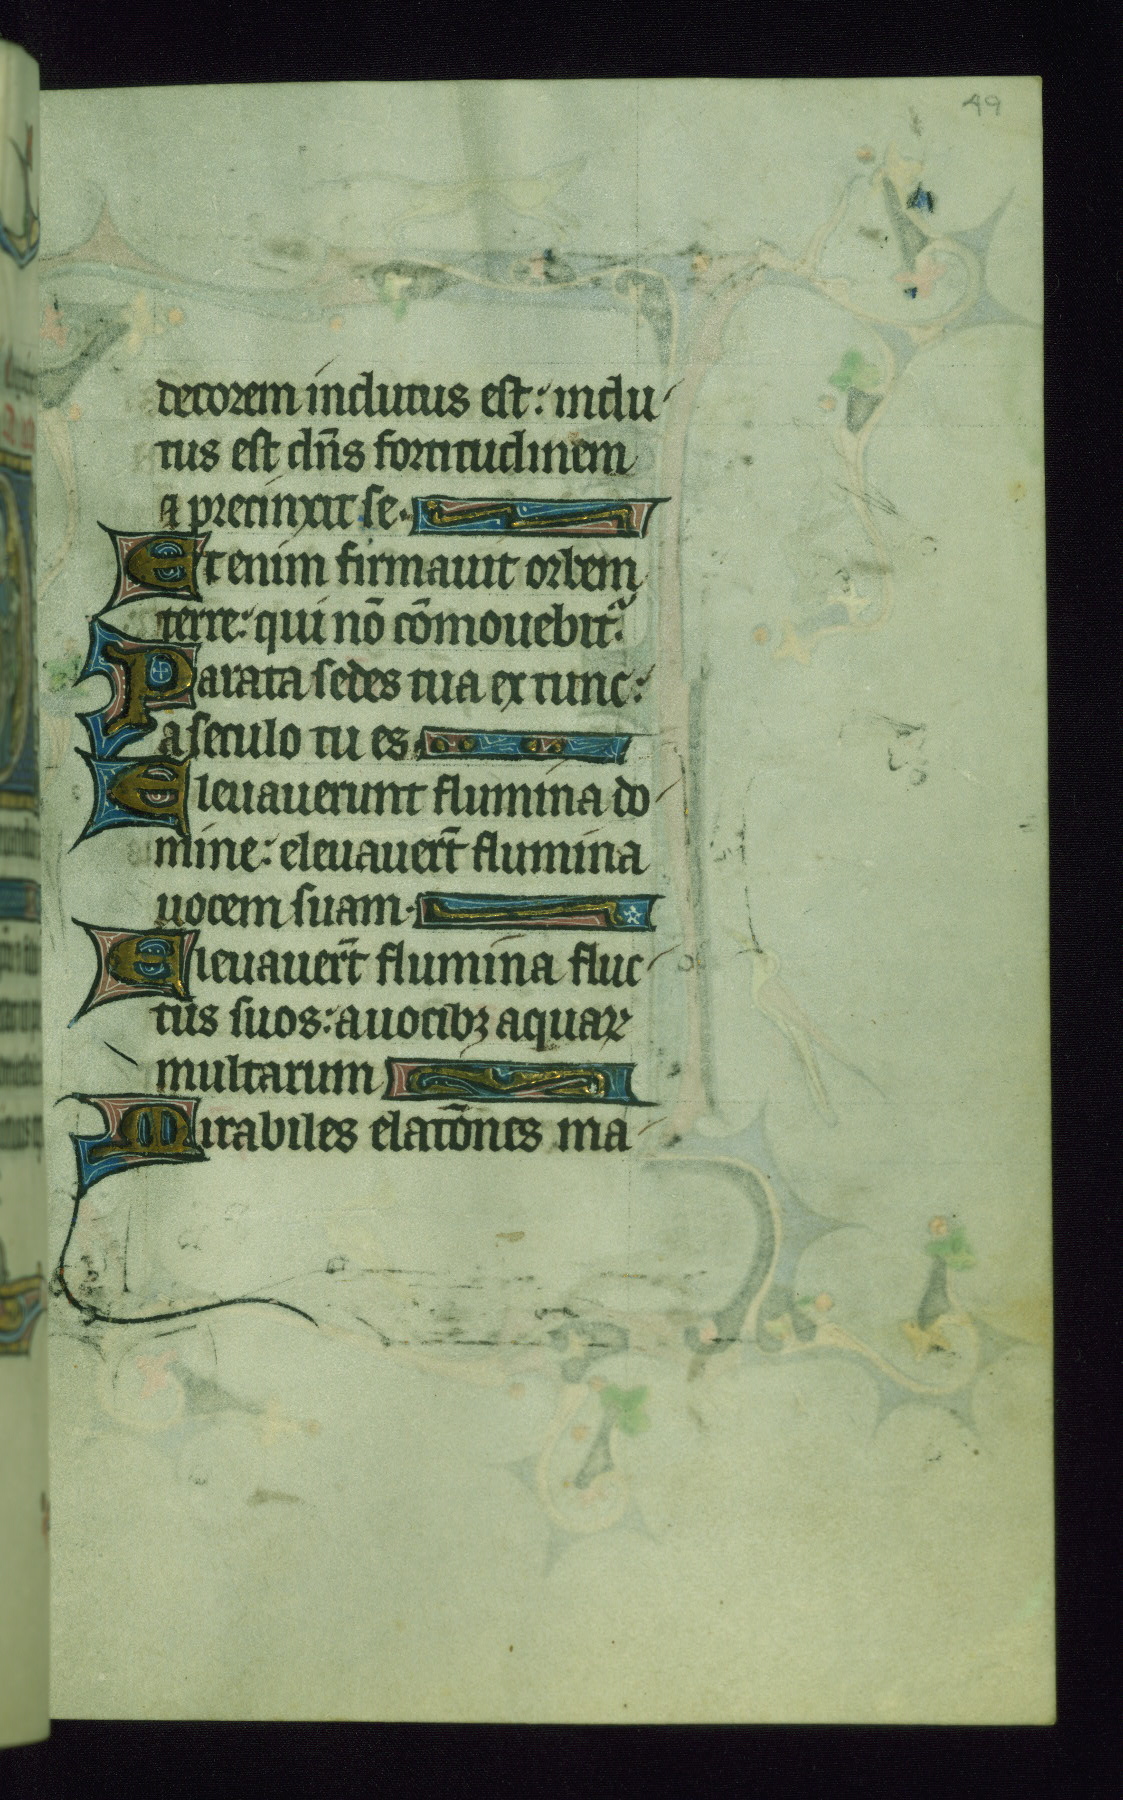 49
decorem indutus est: indu
tus est dñs fortitudinem
⁊ precinxit se.
Etenim firmauit orbem
terre: qui nō cōmouebitᷣ.
Parata sedes tua ex tunc:
a seculo tu es.
Eleuauerunt flumina do
mine: eleuauer̄t flumina
uocem suam.
Eleuauer̄t flumina fluc
tus suos: a uocibꝫ aquaꝝ
multarum
Mirabiles elatōnes ma